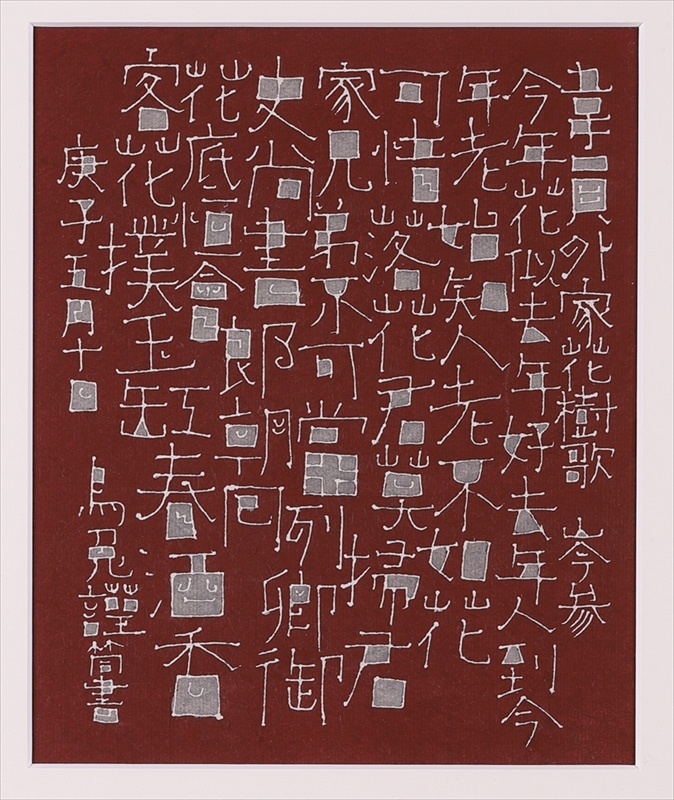 韋員外家花樹歌 岑参
今年花似去年好去年人到今
年老始知人老不如花
可惜落花君莫掃君
家兄弟不可當列卿御
史尚書郎朝回
花底恒會
客花撲玉缸春酒香
庚子五月十日 烏兔 書